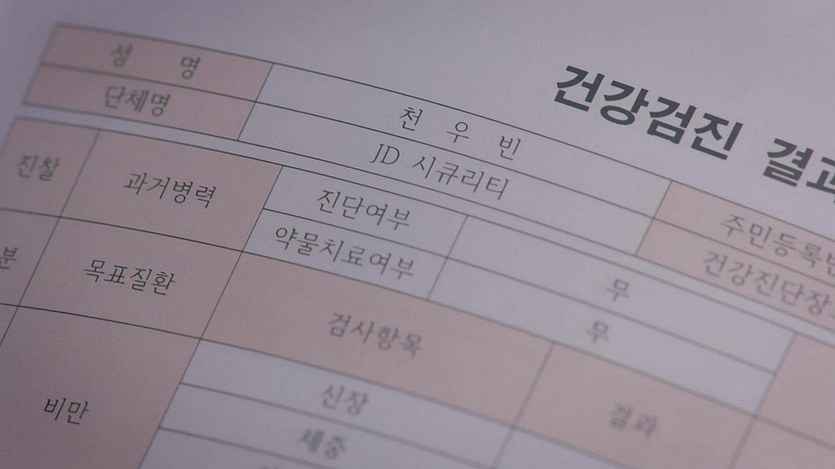 건강검진 결과
성 명 천 우 빈 주민등록번
단체명 JD 시큐리티 건강진단장
진찰 과거병력 진단여부 무
약물치료여부 무
분 목표질환 검사항목 결과
비만 신장
체중